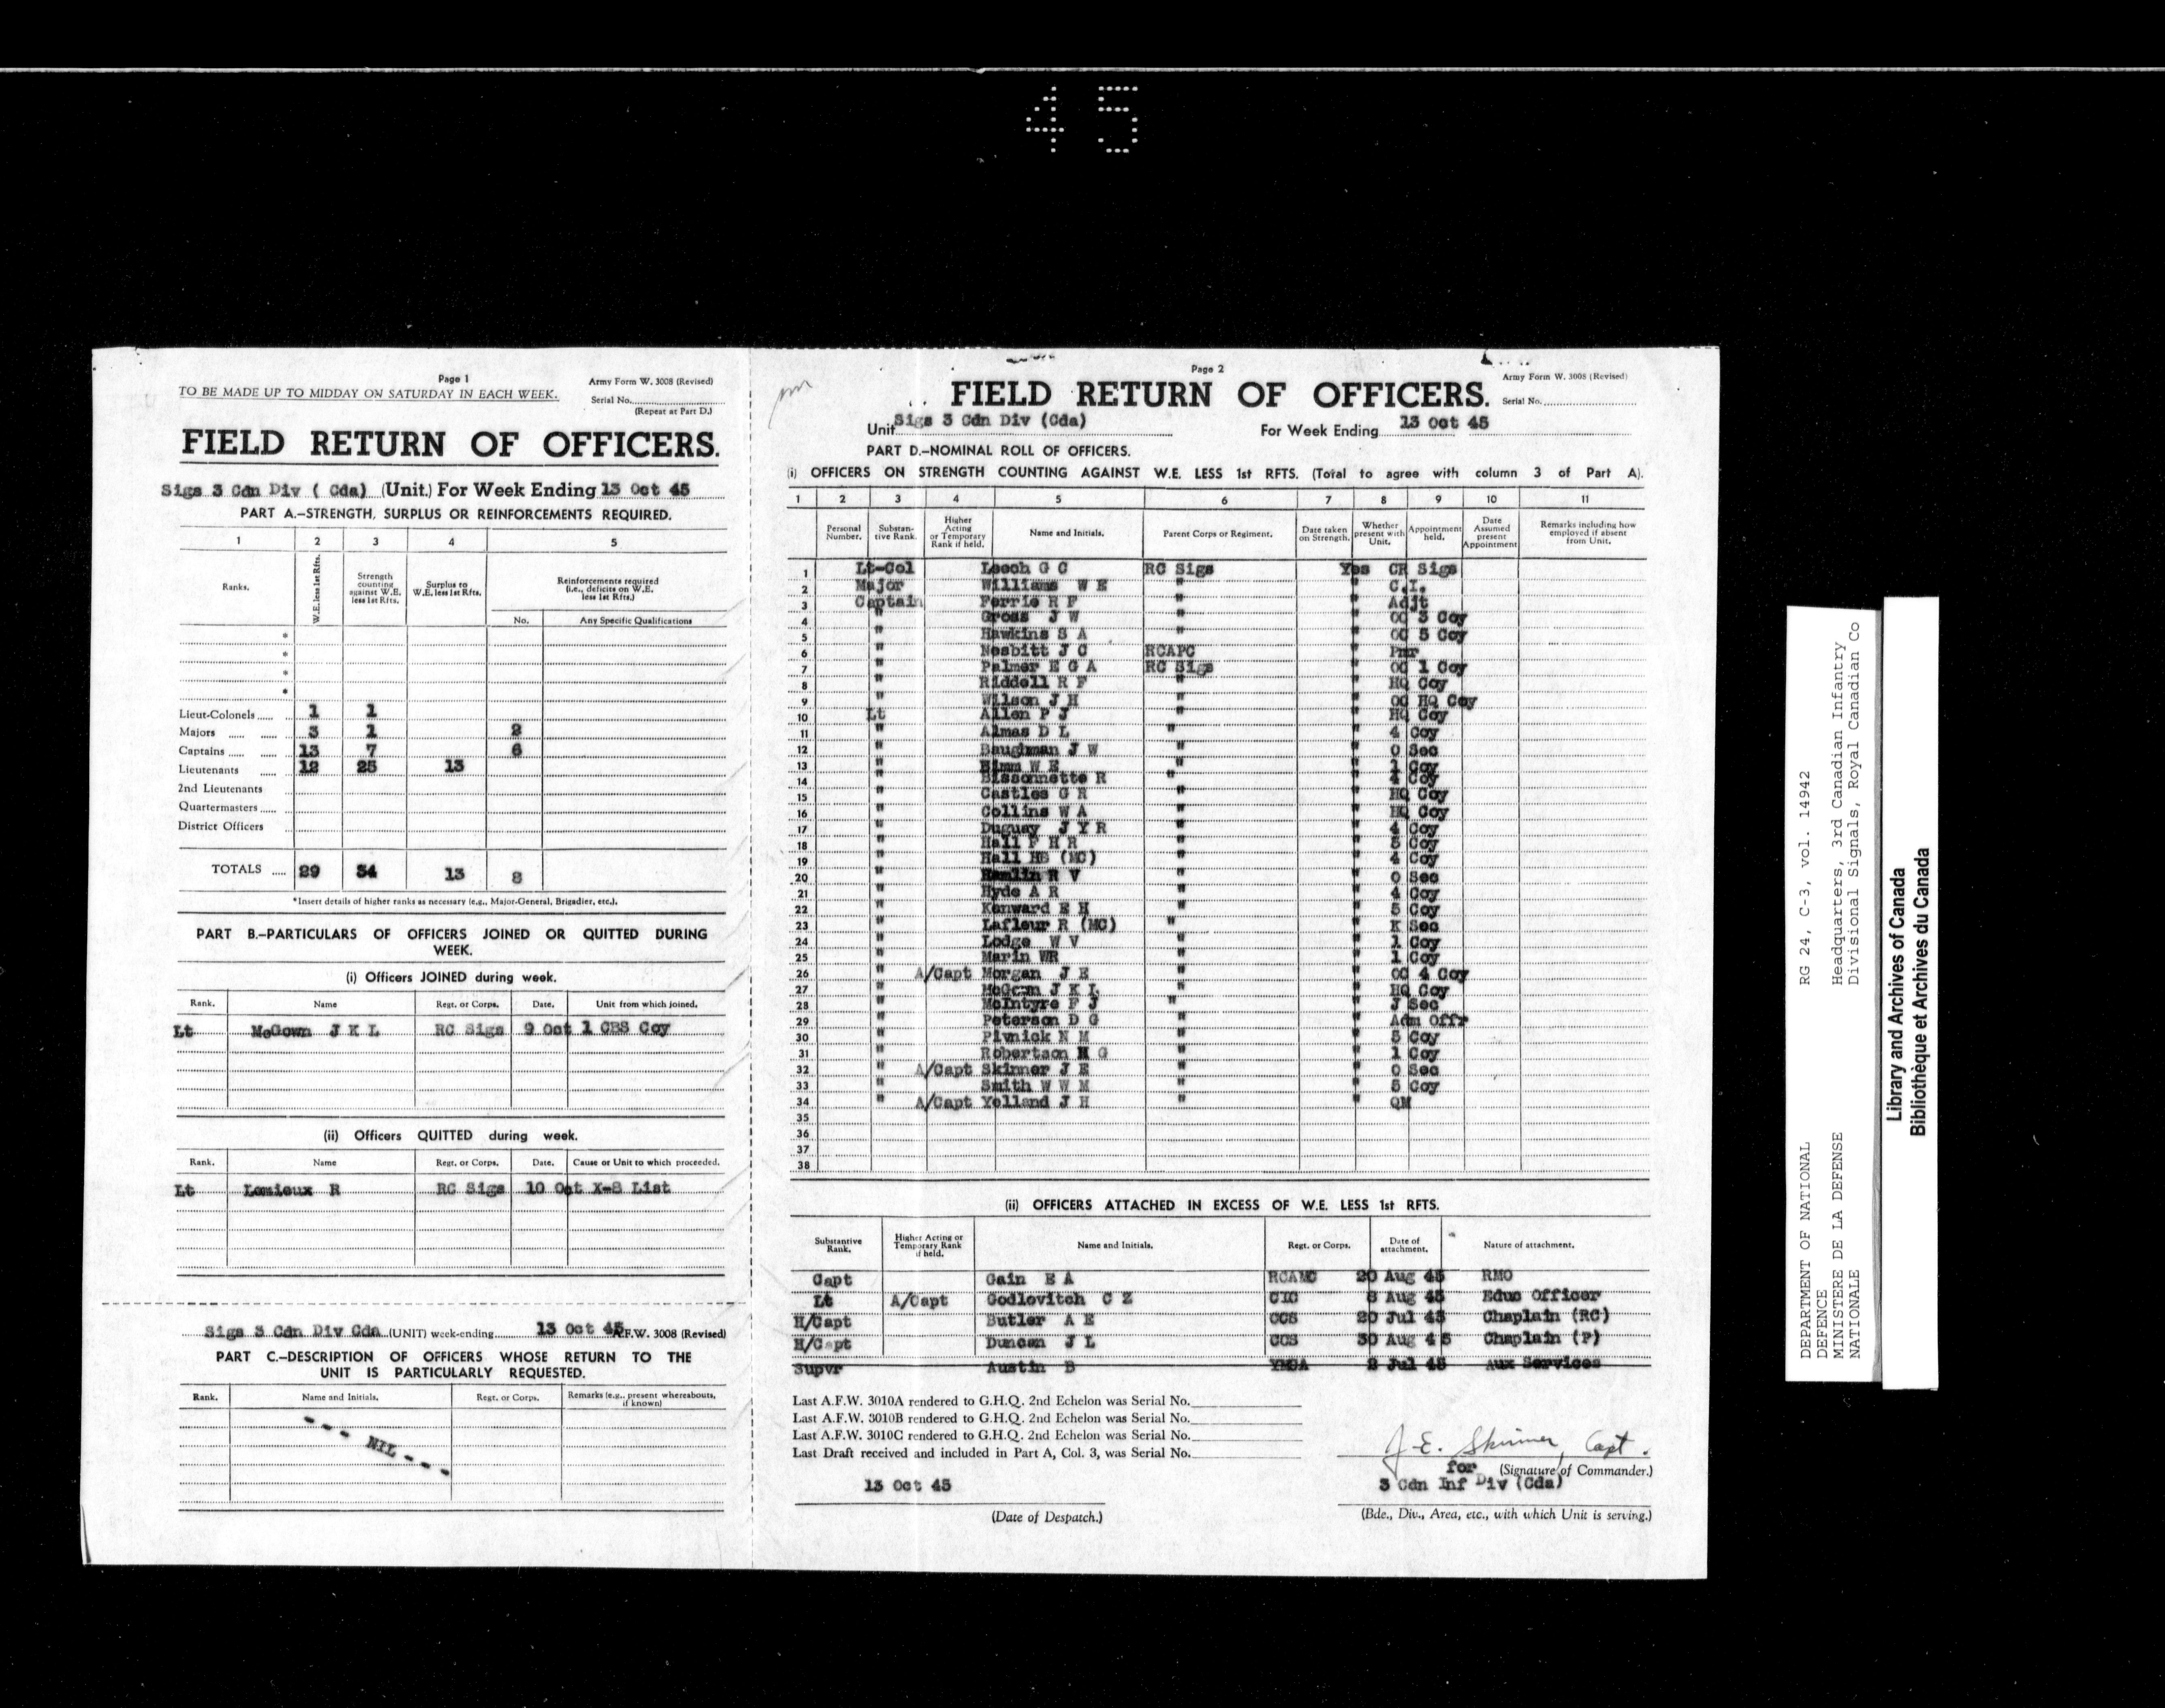 45
Page 1
TO BE MADE UP TO MIDDAY ON SATURDAY IN EACH WEEK.
Army Form W. 3008 (Revised)
Serial No.
(Repeat at Part D.)
FIELD RETURN OF OFFICERS.
Sigs 3 Cdn Div ( Cda) (Unit.) For Week Ending 13 Oct 45
PART A.—STRENGTH, SURPLUS OR REINFORCEMENTS REQUIRED.
1 2 3 4 5
Ranks. W.E. less 1st Rfts. Strength counting against W.E. less 1st Rfts. Surplus to W.E. less 1st Rfts. Reinforcements required (i.e., deficits on W.E. less 1st Rfts.)
No. Any Specific Qualifications
*
*
*
*
Lieut-Colonels 1 1
Majors 3 1 2
Captains 13 7 6
Lieutenants 12 25 13
2nd Lieutenants
Quartermasters
District Officers
TOTALS 29 34 13 8
*Insert details of higher ranks as necessary (e.g., Major-General, Brigadier, etc.).
PART B.—PARTICULARS OF OFFICERS JOINED OR QUITTED DURING
WEEK.
(i) Officers JOINED during week.
Rank. Name Regt. or Corps. Date. Unit from which joined.
Lt McGown J K L RC Sigs 9 Oct 1 CBS Coy
(ii) Officers QUITTED during week.
Rank. Name Regt. or Corps. Date. Cause or Unit to which proceeded.
Lt Lemieux R RC Sigs 10 Oct X-8 List
Sigs 3 Cdn Div Cda (UNIT) week-ending 13 Oct 45 A.F.W. 3008 (Revised)
PART C.—DESCRIPTION OF OFFICERS WHOSE RETURN TO THE
UNIT IS PARTICULARLY REQUESTED.
Rank. Name and Initials. Regt. or Corps. Remarks (e.g., present whereabouts, if known)
- - - NIL - - - -
Page 2
Army Form W. 3008 (Revised)
FIELD RETURN OF OFFICERS.
Serial No.
Unit Sigs 3 Cdn Div (Cda) For Week Ending 13 Oct 45
PART D.—NOMINAL ROLL OF OFFICERS.
(i) OFFICERS ON STRENGTH COUNTING AGAINST W.E. LESS 1st RFTS. (Total to agree with column 3 of Part A).
1 2 3 4 5 6 7 8 9 10 11
Personal Number. Substantive Rank. Higher Acting or Temporary Rank if held. Name and Initials. Parent Corps or Regiment. Date taken on Strength. Whether present with Unit. Appointment held. Date Assumed present Appointment Remarks including how employed if absent from Unit.
1 Lt-Col Leech G C RC Sigs Yes CR Sigs
2 Major Williams W E " " C.I.
3 Captain Ferrie R F " " Adjt
4 " Gross J W " " OC 3 Coy
5 " Hawkins S A " " OC 5 Coy
6 " Nesbitt J C RCAPC " Pmr
7 " Palmer E G A RC Sigs " OC 1 Coy
8 " Riddell R F " " HQ Coy
9 " Wilson J H " " OC HQ Coy
10 Lt Allen P J " " HQ Coy
11 " Almas D L " " 4 Coy
12 " Baughman J W " " O Sec
13 " W E " " 1 Coy
14 " Bissonnette R " " 4 Coy
15 " Castles G R " " HQ Coy
16 " Collins W A " " HQ Coy
17 " Duguay J Y R " " 4 Coy
18 " Hall F H R " " 5 Coy
19 " Hall HS (MC) " " 4 Coy
20 " Hamlin R V " " O Sec
21 " Hyde A R " " 4 Coy
22 " Kenward E H " " 5 Coy
23 " Lafleur R (MC) " " K Sec
24 " Lodge W V " " 1 Coy
25 " Marin WR " " 1 Coy
26 " A/Capt Morgan J E " " OC 4 Coy
27 " McGown J K L " " HQ Coy
28 " McIntyre F J " " J Sec
29 " Peterson D G " " Adm Offr
30 " Pivnick N M " " 5 Coy
31 " Robertson H G " " 1 Coy
32 " A/Capt Skinner J E " " O Sec
33 " Smith W W M " " 5 Coy
34 " A/Capt Yelland J H " " QM
35
36
37
38
(ii) OFFICERS ATTACHED IN EXCESS OF W.E. LESS 1st RFTS.
Substantive Rank. Higher Acting or Temporary Rank if held. Name and Initials. Regt. or Corps. Date of attachment. Nature of attachment.
Capt Gain E A RCAMC 20 Aug 45 RMO
Lt A/Capt Godlovitch C Z CIC 8 Aug 45 Educ Officer
H/Capt Butler A E CCS 20 Jul 45 Chaplain (RC)
H/Capt Duncan J L CCS 30 Aug 45 Chaplain (P)
Supvr Austin B YMCA 2 Jul 45 Aux Services
Last A.F.W. 3010A rendered to G.H.Q. 2nd Echelon was Serial No.
Last A.F.W. 3010B rendered to G.H.Q. 2nd Echelon was Serial No.
Last A.F.W. 3010C rendered to G.H.Q. 2nd Echelon was Serial No.
Last Draft received and included in Part A, Col. 3, was Serial No.
J. E. Skinner, Capt.
for (Signature of Commander.)
13 Oct 45
3 Cdn Inf Div (Cda)
(Date of Despatch.)
(Bde., Div., Area, etc., with which Unit is serving.)
DEPARTMENT OF NATIONAL
DEFENCE
MINISTERE DE LA DEFENSE
NATIONALE
RG 24, C-3, vol. 14942
Headquarters, 3rd Canadian Infantry
Divisional Signals, Royal Canadian Co
Library and Archives of Canada
Bibliothèque et Archives du Canada